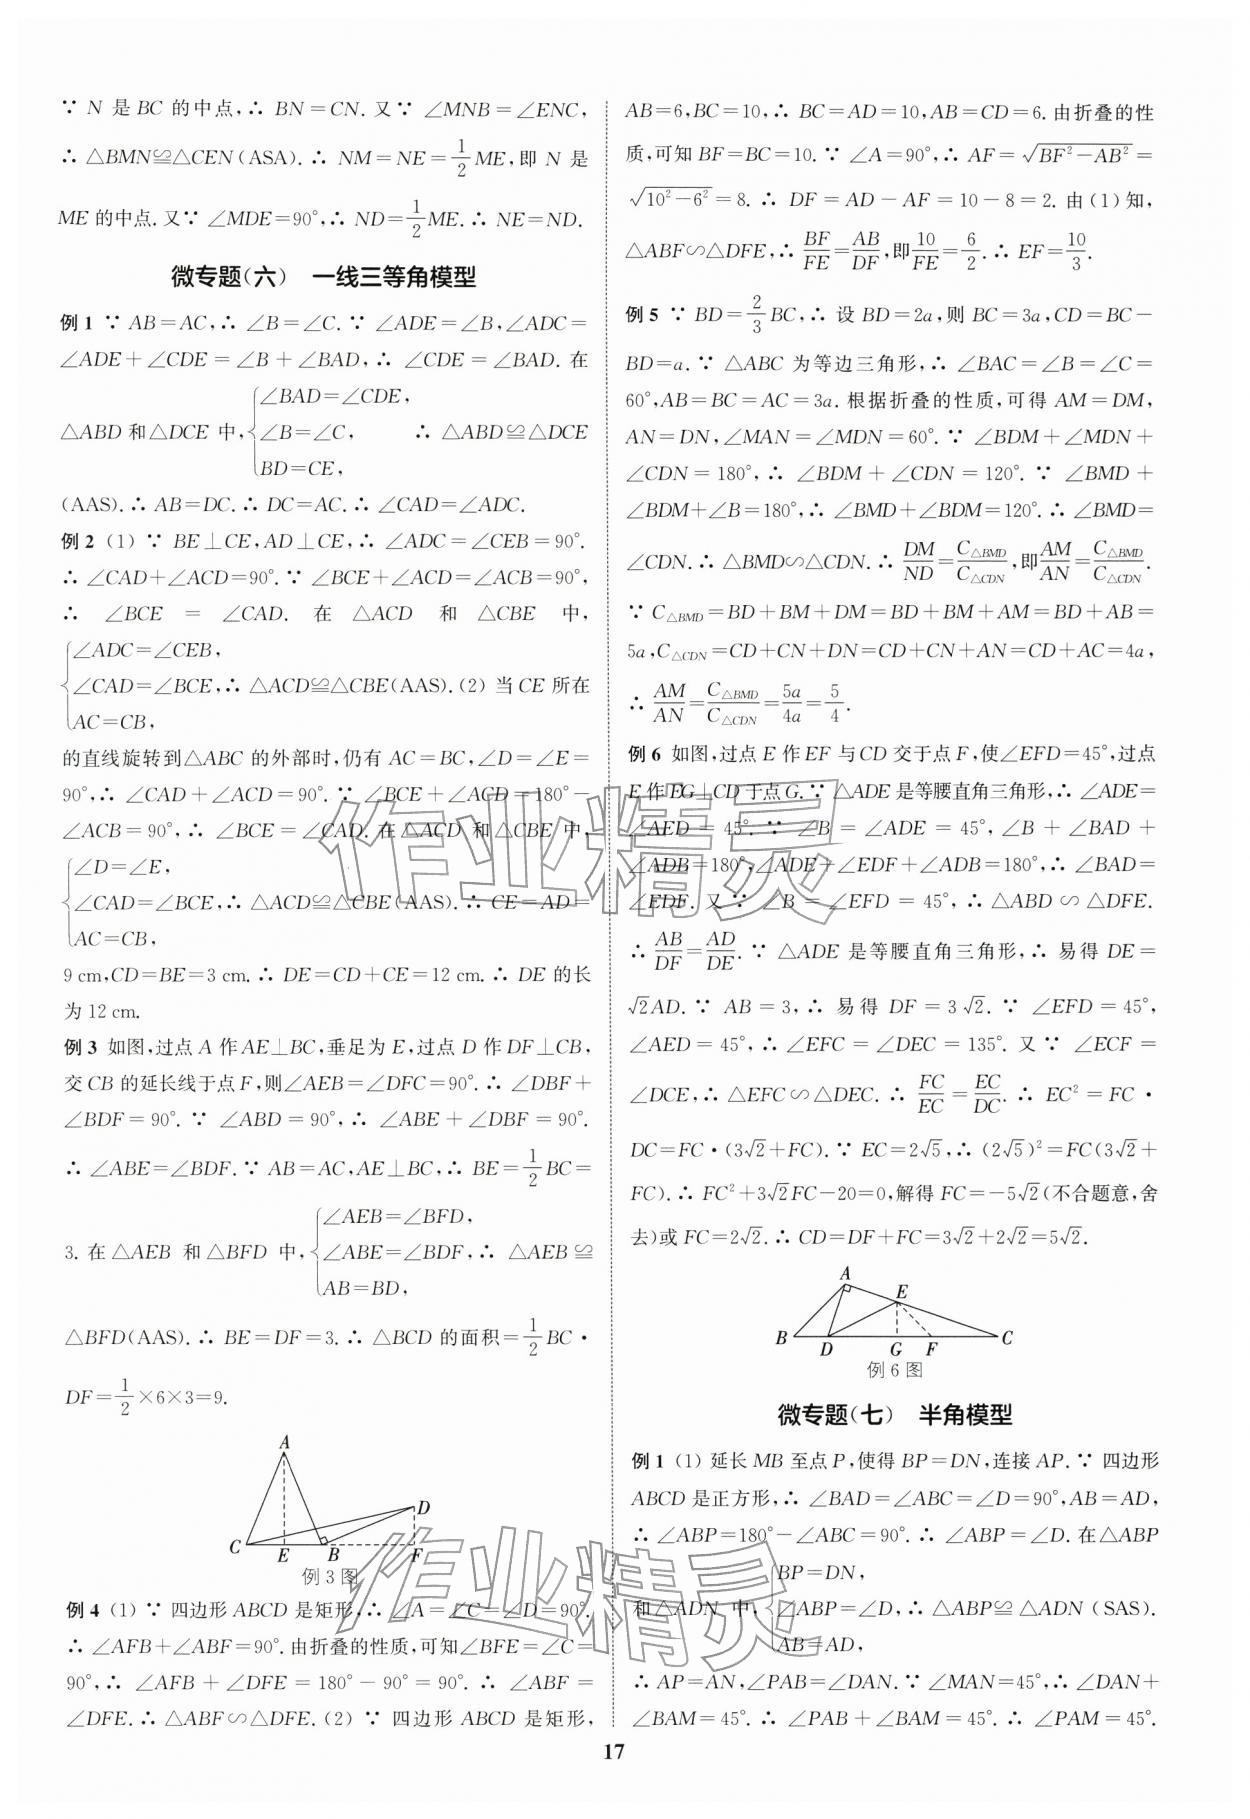 ∵ N 是 BC 的中点,∴ BN=CN. 又∵ ∠MNB=∠ENC,
∴ △BMN≌△CEN(ASA). ∴ NM=NE=1/2 ME,即 N 是
ME 的中点. 又∵ ∠MDE=90°,∴ ND=1/2 ME. ∴ NE=ND.
微专题(六) 一线三等角模型
例 1 ∵ AB=AC,∴ ∠B=∠C. ∵ ∠ADE=∠B,∠ADC=
∠ADE+∠CDE=∠B+∠BAD,∴ ∠CDE=∠BAD. 在
∠BAD=∠CDE,
△ABD 和△DCE 中,{∠B=∠C, ∴ △ABD≌△DCE
BD=CE,
(AAS). ∴ AB=DC. ∴ DC=AC. ∴ ∠CAD=∠ADC.
例 2 (1) ∵ BE⊥CE,AD⊥CE,∴ ∠ADC=∠CEB=90°.
∴ ∠CAD+∠ACD=90°. ∵ ∠BCE+∠ACD=∠ACB=90°,
∴ ∠BCE = ∠CAD. 在 △ACD 和 △CBE 中,
∠ADC=∠CEB,
{∠CAD=∠BCE,∴ △ACD≌△CBE(AAS). (2) 当 CE 所在
AC=CB,
的直线旋转到△ABC 的外部时,仍有 AC=BC,∠D=∠E=
90°,∴ ∠CAD+∠ACD=90°. ∵ ∠BCE+∠ACD=180°-
∠ACB=90°,∴ ∠BCE=∠CAD. 在△ACD 和△CBE 中,
∠D=∠E,
{∠CAD=∠BCE,∴ △ACD≌△CBE(AAS). ∴ CE=AD=
AC=CB,
9 cm,CD=BE=3 cm. ∴ DE=CD+CE=12 cm. ∴ DE 的长
为 12 cm.
例 3 如图,过点 A 作 AE⊥BC,垂足为 E,过点 D 作 DF⊥CB,
交 CB 的延长线于点 F,则∠AEB=∠DFC=90°. ∴ ∠DBF+
∠BDF=90°. ∵ ∠ABD=90°,∴ ∠ABE+∠DBF=90°.
∴ ∠ABE=∠BDF. ∵ AB=AC,AE⊥BC,∴ BE=1/2 BC=
∠AEB=∠BFD,
3. 在△AEB 和△BFD 中,{∠ABE=∠BDF,∴ △AEB≌
AB=BD,
△BFD(AAS). ∴ BE=DF=3. ∴ △BCD 的面积=1/2 BC·
DF=1/2×6×3=9.
A
D
C E B F
例 3 图
例 4 (1) ∵ 四边形 ABCD 是矩形,∴ ∠A=∠C=∠D=90°.
∴ ∠AFB+∠ABF=90°. 由折叠的性质,可知∠BFE=∠C=
90°,∴ ∠AFB+∠DFE=180°-90°=90°. ∴ ∠ABF=
∠DFE. ∴ △ABF∽△DFE. (2) ∵ 四边形 ABCD 是矩形,
AB=6,BC=10,∴ BC=AD=10,AB=CD=6. 由折叠的性
质,可知 BF=BC=10. ∵ ∠A=90°,∴ AF=√(BF²-AB²)=
√(10²-6²)=8. ∴ DF=AD-AF=10-8=2. 由(1)知,
△ABF∽△DFE,∴ BF/FE=AB/DF,即10/FE=6/2. ∴ EF=10/3.
例 5 ∵ BD=2/3 BC,∴ 设 BD=2a,则 BC=3a,CD=BC-
BD=a. ∵ △ABC 为等边三角形,∴ ∠BAC=∠B=∠C=
60°,AB=BC=AC=3a. 根据折叠的性质,可得 AM=DM,
AN=DN,∠MAN=∠MDN=60°. ∵ ∠BDM+∠MDN+
∠CDN=180°,∴ ∠BDM+∠CDN=120°. ∵ ∠BMD+
∠BDM+∠B=180°,∴ ∠BMD+∠BDM=120°. ∴ ∠BMD=
∠CDN. ∴ △BMD∽△CDN. ∴ DM/ND=C△BMD/C△CDN,即AM/AN=C△BMD/C△CDN.
∵ C△BMD=BD+BM+DM=BD+BM+AM=BD+AB=
5a,C△CDN=CD+CN+DN=CD+CN+AN=CD+AC=4a,
∴ AM/AN=C△BMD/C△CDN=5a/4a=5/4.
例 6 如图,过点 E 作 EF 与 CD 交于点 F,使∠EFD=45°,过点
E 作 EG⊥CD 于点 G. ∵ △ADE 是等腰直角三角形,∴ ∠ADE=
∠AED = 45°. ∵ ∠B = ∠ADE = 45°,∠B + ∠BAD +
∠ADB=180°,∠ADE+∠EDF+∠ADB=180°,∴ ∠BAD=
∠EDF. 又∵ ∠B=∠EFD=45°,∴ △ABD∽△DFE.
∴ AB/DF=AD/DE. ∵ △ADE 是等腰直角三角形,∴ 易得 DE=
√2AD. ∵ AB=3,∴ 易得 DF=3√2. ∵ ∠EFD=45°,
∠AED=45°,∴ ∠EFC=∠DEC=135°. 又∵ ∠ECF=
∠DCE,∴ △EFC∽△DEC. ∴ FC/EC=EC/DC. ∴ EC²=FC·
DC=FC·(3√2+FC). ∵ EC=2√5,∴ (2√5)²=FC(3√2+
FC). ∴ FC²+3√2FC-20=0,解得 FC=-5√2(不合题意,舍
去)或 FC=2√2. ∴ CD=DF+FC=3√2+2√2=5√2.
A
E
B D G F C
例 6 图
微专题(七) 半角模型
例 1 (1) 延长 MB 至点 P,使得 BP=DN,连接 AP. ∵ 四边形
ABCD 是正方形,∴ ∠BAD=∠ABC=∠D=90°,AB=AD,
∴ ∠ABP=180°-∠ABC=90°. ∴ ∠ABP=∠D. 在△ABP
BP=DN,
和△ADN 中,{∠ABP=∠D,∴ △ABP≌△ADN(SAS).
AB=AD,
∴ AP=AN,∠PAB=∠DAN. ∵ ∠MAN=45°,∴ ∠DAN+
∠BAM=45°. ∴ ∠PAB+∠BAM=45°. ∴ ∠PAM=45°.
17
作业精灵
作业精灵